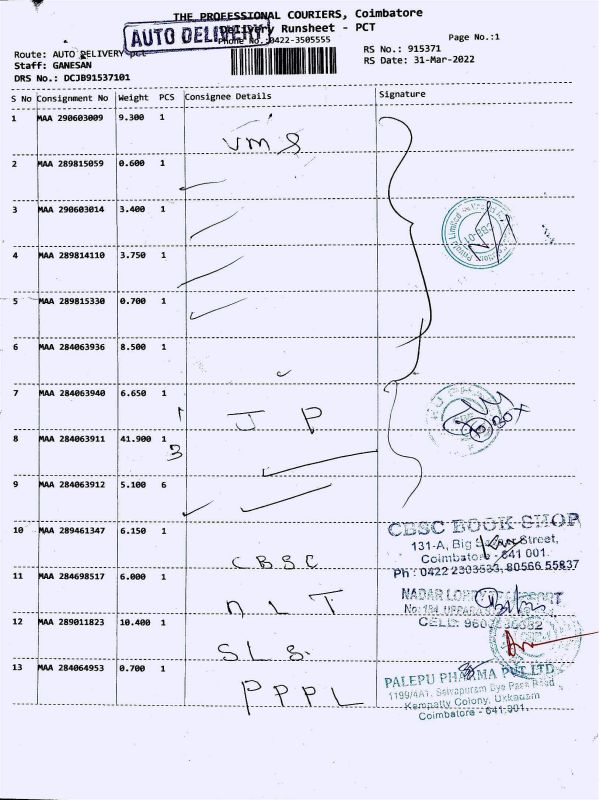 THE PROFESSIONAL COURIERS, Coimbatore
AUTO DELIVERY
Delivery Runsheet - PCT
Phone No.:0422-3505555
Page No.:1
Route: AUTO DELIVERY-pct
RS No.: 915371
Staff: GANESAN
RS Date: 31-Mar-2022
DRS No.: DCJB91537101
S No Consignment No Weight PCS Consignee Details Signature
1 MAA 290603009 9.300 1
VMS
2 MAA 289815059 0.600 1
3 MAA 290603014 3.400 1
4 MAA 289814110 3.750 1
5 MAA 289815330 0.700 1
6 MAA 284063936 8.500 1
7 MAA 284063940 6.650 1
1 J P
8 MAA 284063911 41.900 1
3
9 MAA 284063912 5.100 6
10 MAA 289461347 6.150 1
CBSC
CBSC BOOK SHOP
131-A, Big Street,
Coimbatore - 641 001.
Ph : 0422 2303533, 80566 55837
11 MAA 284698517 6.000 1
NLT
NADAR LORRY
CELL:
12 MAA 289011823 10.400 1
SLS.
13 MAA 284064953 0.700 1
PPPL
PALEPU PHARMA PVT LTD
1199/4A1, Selvapuram Bye Pass Road
Kempatty Colony, Ukkadam
Coimbatore - 641 001.